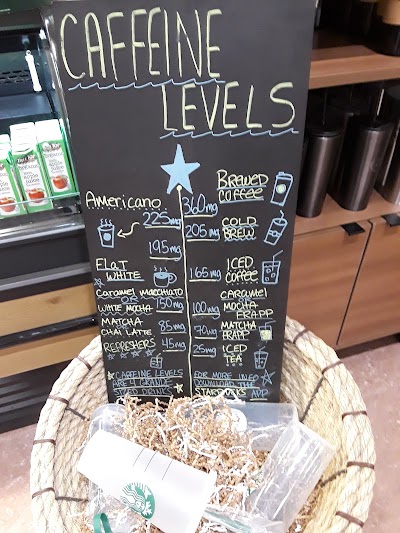 CAFFEINE
LEVELS
BREWED
COFFEE
360mg
Americano
225mg
COLD
BREW
205mg
195mg
FLAT
WHITE
ICED
COFFEE
165mg
CARAMEL MACCHIATO
OR
WHITE MOCHA 150mg
CARAMEL
MOCHA
FRAPP
100mg
MATCHA
CHAI LATTE
85mg
MATCHA
FRAPP
70mg
REFRESHERS
45mg
ICED
TEA
25mg
CAFFEINE LEVELS
ARE 4 GRANDE
SIZED DRINKS
FOR MORE INFO
DOWNLOAD THE
STARBUCKS APP